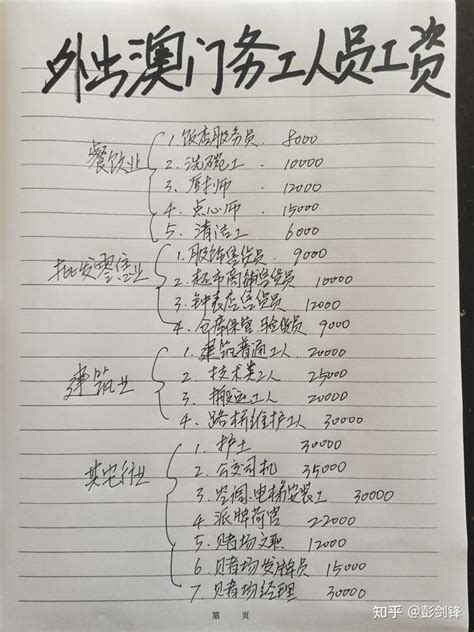 外出澳门务工人员工资
餐饮业
1. 饭店服务员. 8000
2. 洗碗工. 10000
3. 厨师. 12000
4. 点心师. 15000
5. 清洁工 6000
批发零售业
1. 服饰售货员. 9000
2. 超市商铺售货员 10000
3. 钟表店售货员 12000
4. 仓库保管.验货员 9000
建筑业
1. 建筑普通工人 20000
2. 技术类工人 25000
3. 搬运工人 20000
4. 路桥维护工人 30000
其它行业
1. 护士 30000
2. 公交司机 35000
3. 空调.电梯安装工 30000
4. 派牌荷官 22000
5. 赌场文职 12000
6. 赌场发牌员 15000
7. 赌场经理 30000
第 页
知乎 @彭剑锋